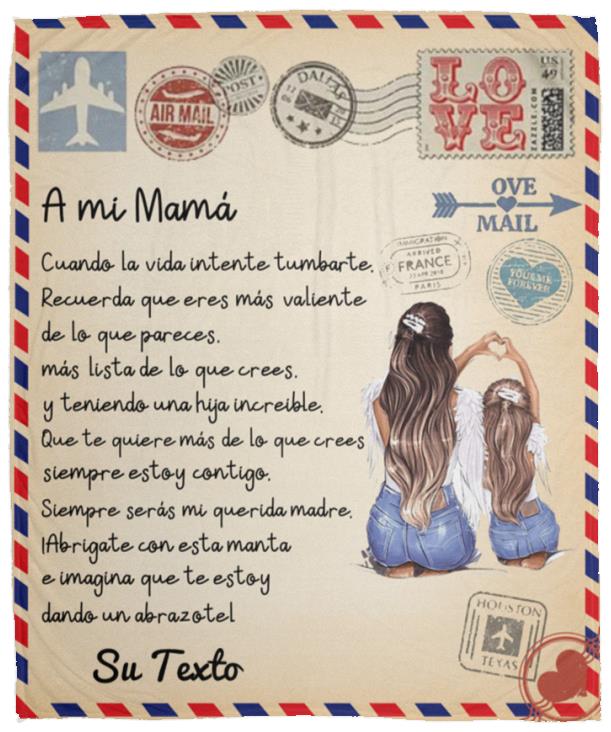 AIR MAIL
POST
DALLAS
LOVE
US
49
ZAZZLE.COM
OVE
MAIL
A mi Mamá
Cuando la vida intente tumbarte,
Recuerda que eres más valiente
de lo que pareces,
más lista de lo que crees,
y teniendo una hija increible,
Que te quiere más de lo que crees
siempre estoy contigo,
Siempre serás mi querida madre,
¡Abrigate con esta manta
e imagina que te estoy
dando un abrazote!
Su Texto
IMMIGRATION
ARRIVED
FRANCE
PARIS
YOU & ME
FOREVER
HOUSTON
TEXAS